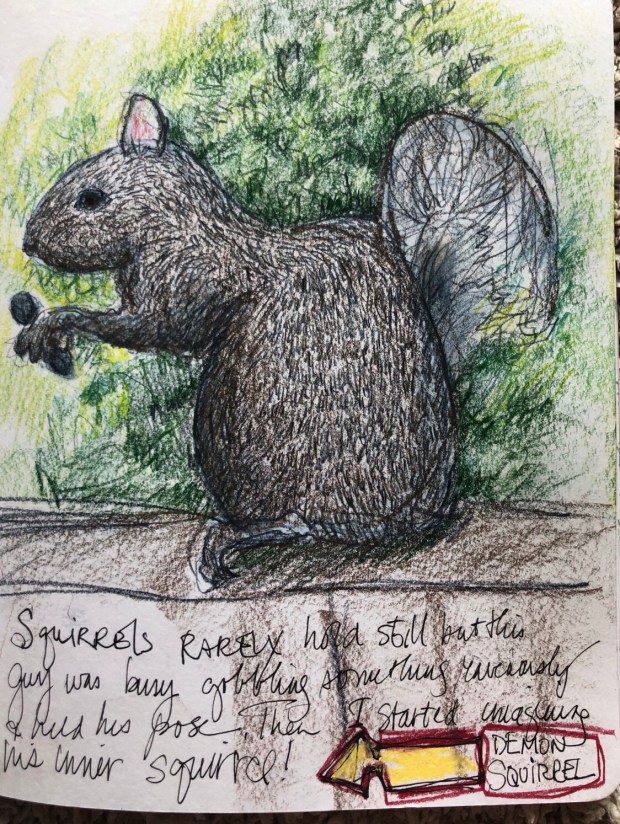 Squirrels RARELY hold still but this
guy was busy gobbling something ravenously
& held his pose. Then I started imagining
his inner squirrel!
DEMON
SQUIRREL